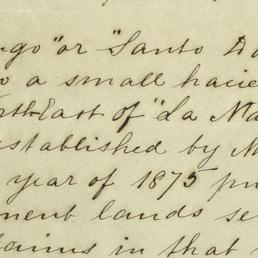 ngo" or "Santo Do
a small hacie
rth East of "La Ma
established by M
year of 1875 pu
ment lands se
laims in that